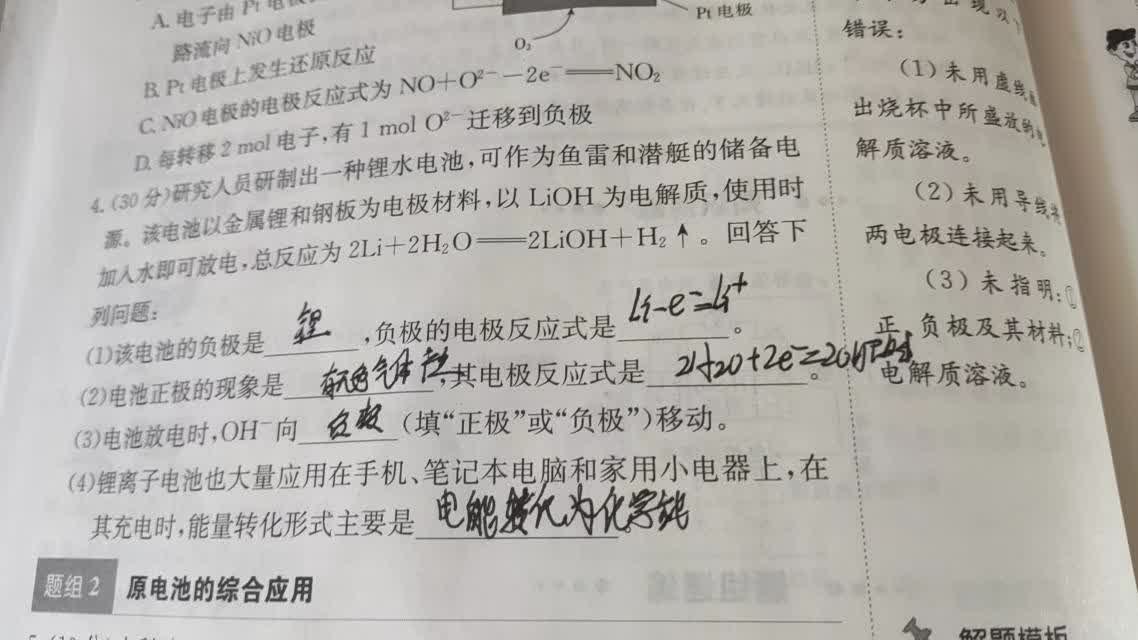 A. 电子由 Pt 电极
路流向 NiO 电极
B. Pt 电极上发生还原反应
C. NiO 电极的电极反应式为 NO+O²⁻-2e⁻══NO₂
D. 每转移 2 mol 电子,有 1 mol O²⁻迁移到负极
O₂
Pt 电极
4. (30分)研究人员研制出一种锂水电池,可作为鱼雷和潜艇的储备电
源。该电池以金属锂和钢板为电极材料,以 LiOH 为电解质,使用时
加入水即可放电,总反应为 2Li+2H₂O══2LiOH+H₂↑。回答下
列问题:
(1)该电池的负极是 锂 ,负极的电极反应式是 Li-e⁻=Li⁺ 。
(2)电池正极的现象是 有无色气体产生 ,其电极反应式是 2H₂O+2e⁻=2OH⁻ 。
(3)电池放电时,OH⁻向 负极 (填“正极”或“负极”)移动。
(4)锂离子电池也大量应用在手机、笔记本电脑和家用小电器上,在
其充电时,能量转化形式主要是 电能转化为化学能
题组2 原电池的综合应用
错误:
(1)未用虚线
出烧杯中所盛放的电
解质溶液。
(2)未用导线将
两电极连接起来。
(3)未指明:①
正、负极及其材料;②
电解质溶液。
解题模板